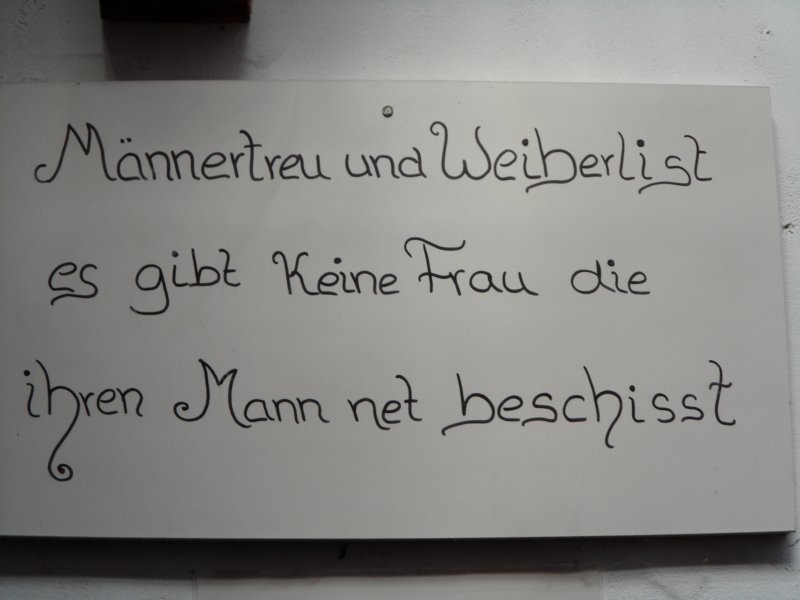 Männertreu und Weiberlist
es gibt Keine Frau die
ihren Mann net beschisst